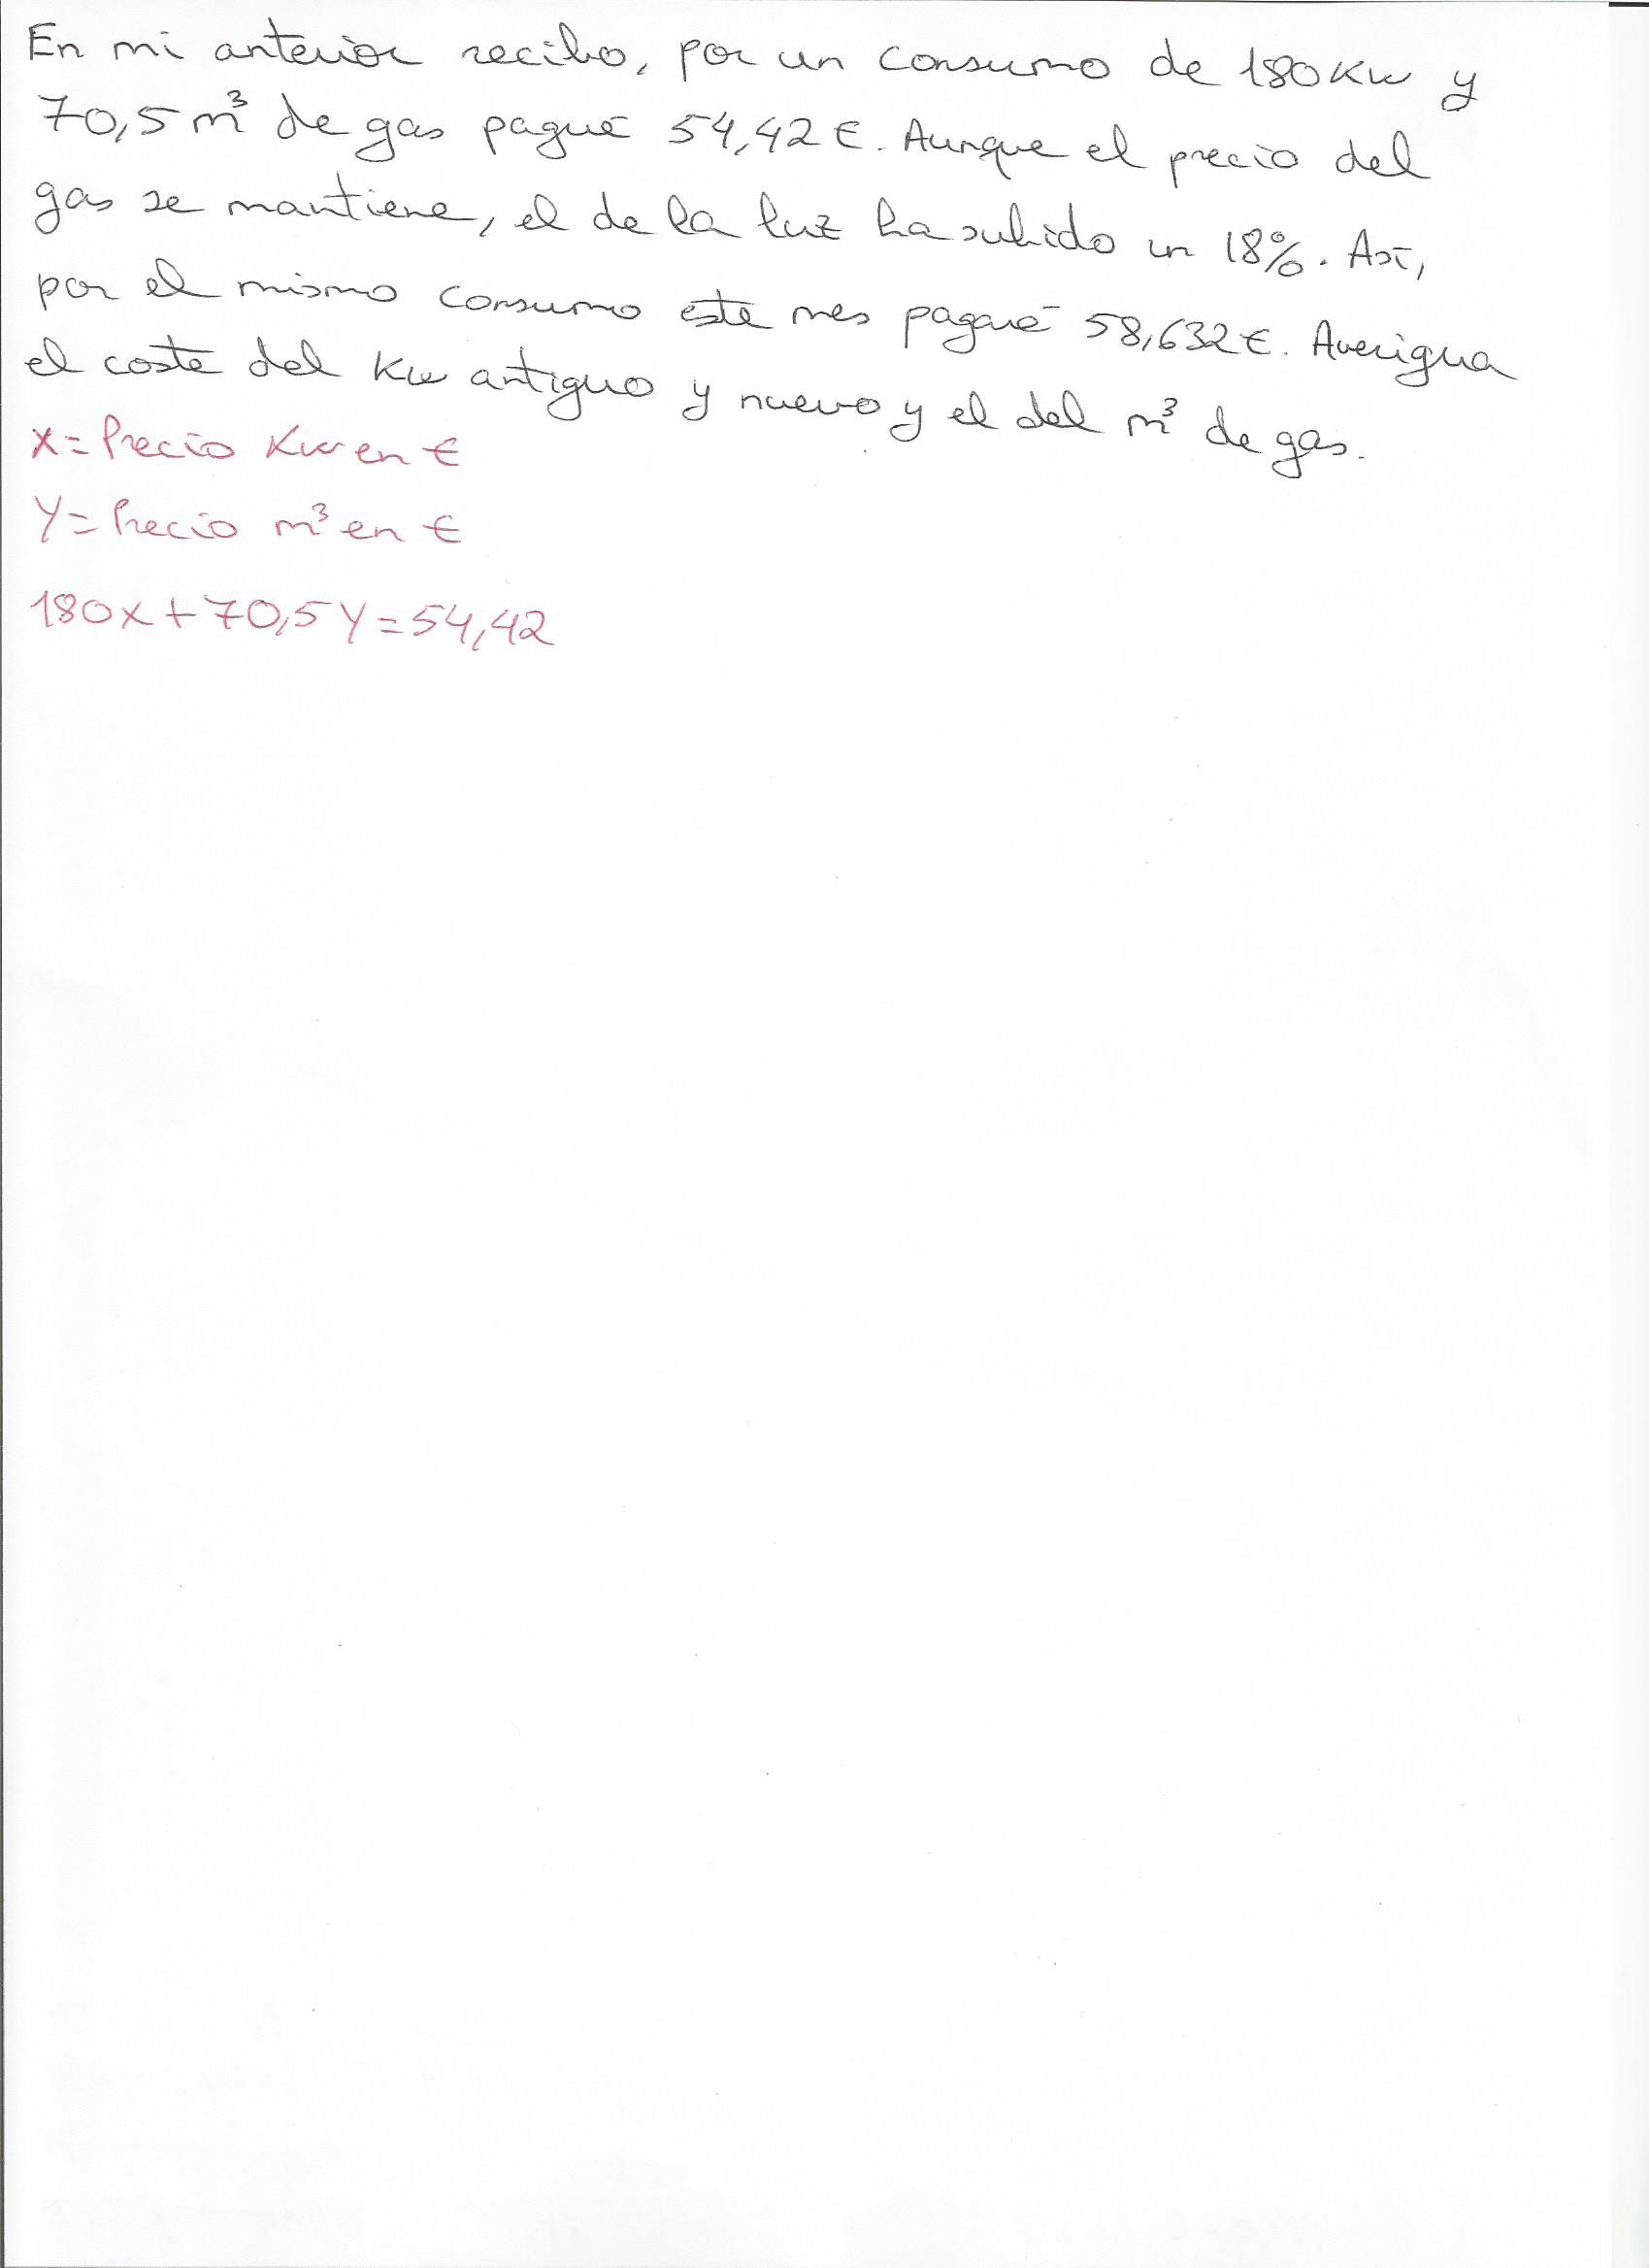 En mi anterior recibo, por un consumo de 180 Kw y
70,5 m³ de gas pagué 54,42 €. Aunque el precio del
gas se mantiene, el de la luz ha subido un 18%. Así,
por el mismo consumo este mes pagué 58,632 €. Averigua
el coste del Kw antiguo y nuevo y el del m³ de gas.
X = Precio Kw en €
Y = Precio m³ en €
180x + 70,5 Y = 54,42